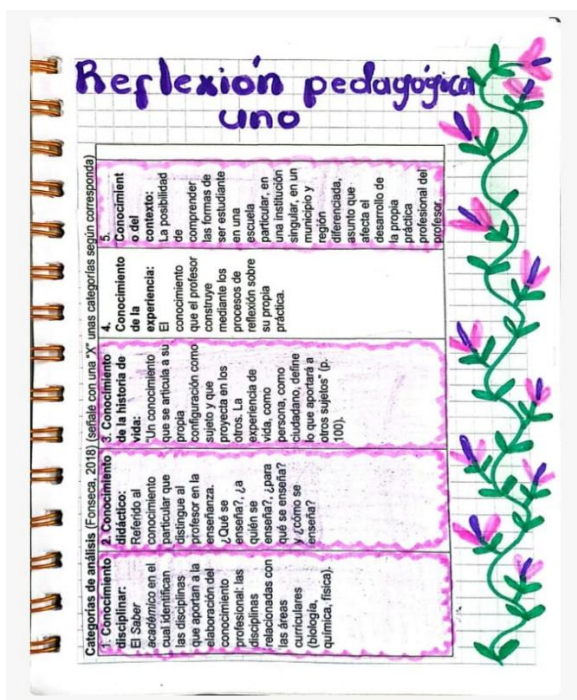 Reflexión pedagógica
uno
Categorías de análisis (Fonseca, 2018) (señale con una "X" unas categorías según corresponda)
1. Conocimiento
disciplinar:
El Saber
académico en el
cual identifican
las disciplinas
que aportan a la
elaboración del
conocimiento
profesional: las
disciplinas
relacionadas con
las áreas
curriculares
(biología,
química, física).
2. Conocimiento
didáctico:
Referido al
conocimiento
particular que
distingue al
profesor en la
enseñanza.
¿Qué se
enseña?, ¿a
quién se
enseña?, ¿para
qué se enseña?
y ¿cómo se
enseña?
3. Conocimiento
de la historia de
vida:
"Un conocimiento
que se articula a su
propia
configuración como
sujeto y que
proyecta en los
otros. La
experiencia de
vida, como
persona, como
ciudadano, define
lo que aportará a
otros sujetos" (p.
100).
4.
Conocimiento
de la
experiencia:
El
conocimiento
que el profesor
construye
mediante los
procesos de
reflexión sobre
su propia
práctica.
5.
Conocimient
o del
contexto:
La posibilidad
de
comprender
las formas de
ser estudiante
en una
escuela
particular, en
una institución
singular, en un
municipio y
región
diferenciada,
asunto que
afecta el
desarrollo de
la propia
práctica
profesional del
profesor.